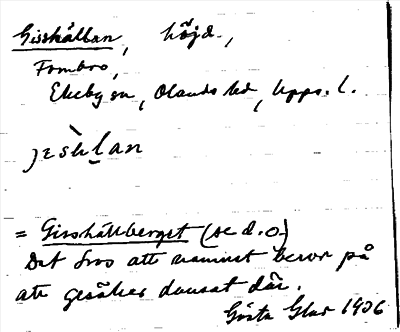 Gisshällan, höjd.,
Fombro,
Ekeby sn, Olands hd, Upps. l.
jɛshḷan
= Gisshällberget (se d. o.)
Det tros att namnet beror på
att gesäller dansat där.
Gösta Glas 1906